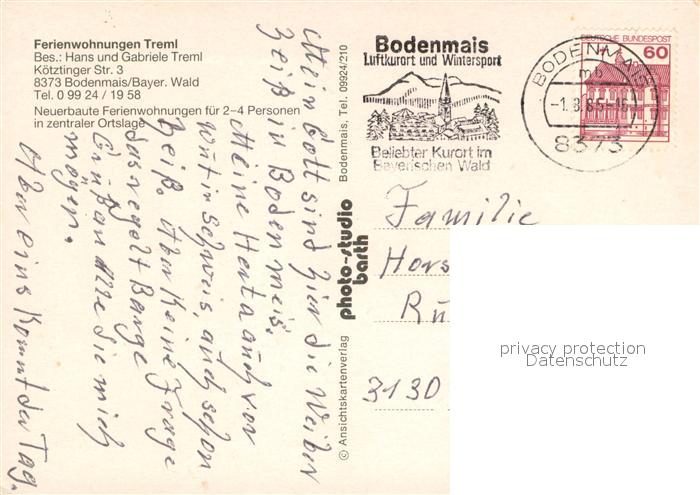 Ferienwohnungen Treml
Bes.: Hans und Gabriele Treml
Kötztinger Str. 3
8373 Bodenmais/Bayer. Wald
Tel. 0 99 24 / 19 58
Neuerbaute Ferienwohnungen für 2–4 Personen
in zentraler Ortslage
Mein Gott sind hier die Weiber
heiß in Bodenmeis.
Meine Herta auch vor
wut in Schweis, auch schon
heiß. Aber keine Frage
das regelt Bange
Gruß an Alle die mich
mögen.
Aber eins kommt der Tag.
© Ansichtskartenverlag
photo-studio
barth
Bodenmais, Tel. 09924/210
Bodenmais
Luftkurort und Wintersport
Beliebter Kurort im
Bayerischen Wald
BODENMAIS
mb
-1.8.85-15
8373
DEUTSCHE BUNDESPOST
60
Familie
Hors
Rü
3130
privacy protection
Datenschutz